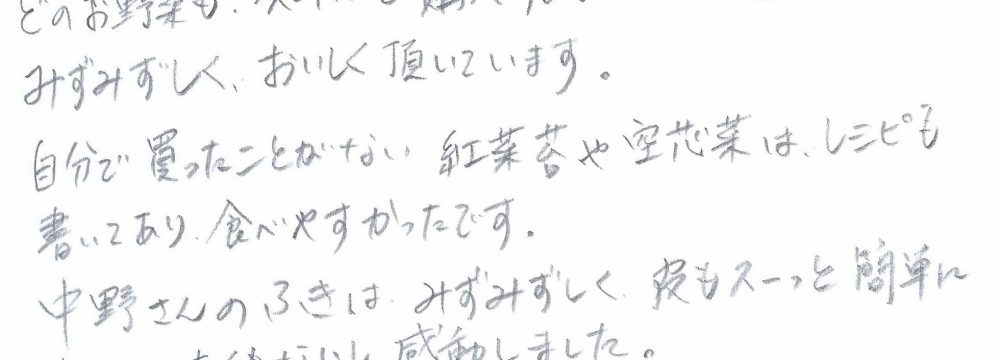 どのお野菜も、
みずみずしく、おいしく頂いています。
自分で買ったことがない紅菜苔や空芯菜は、レシピも
書いてあり、食べやすかったです。
中野さんのふきは、みずみずしく、皮もスーっと簡単に
感動しました。